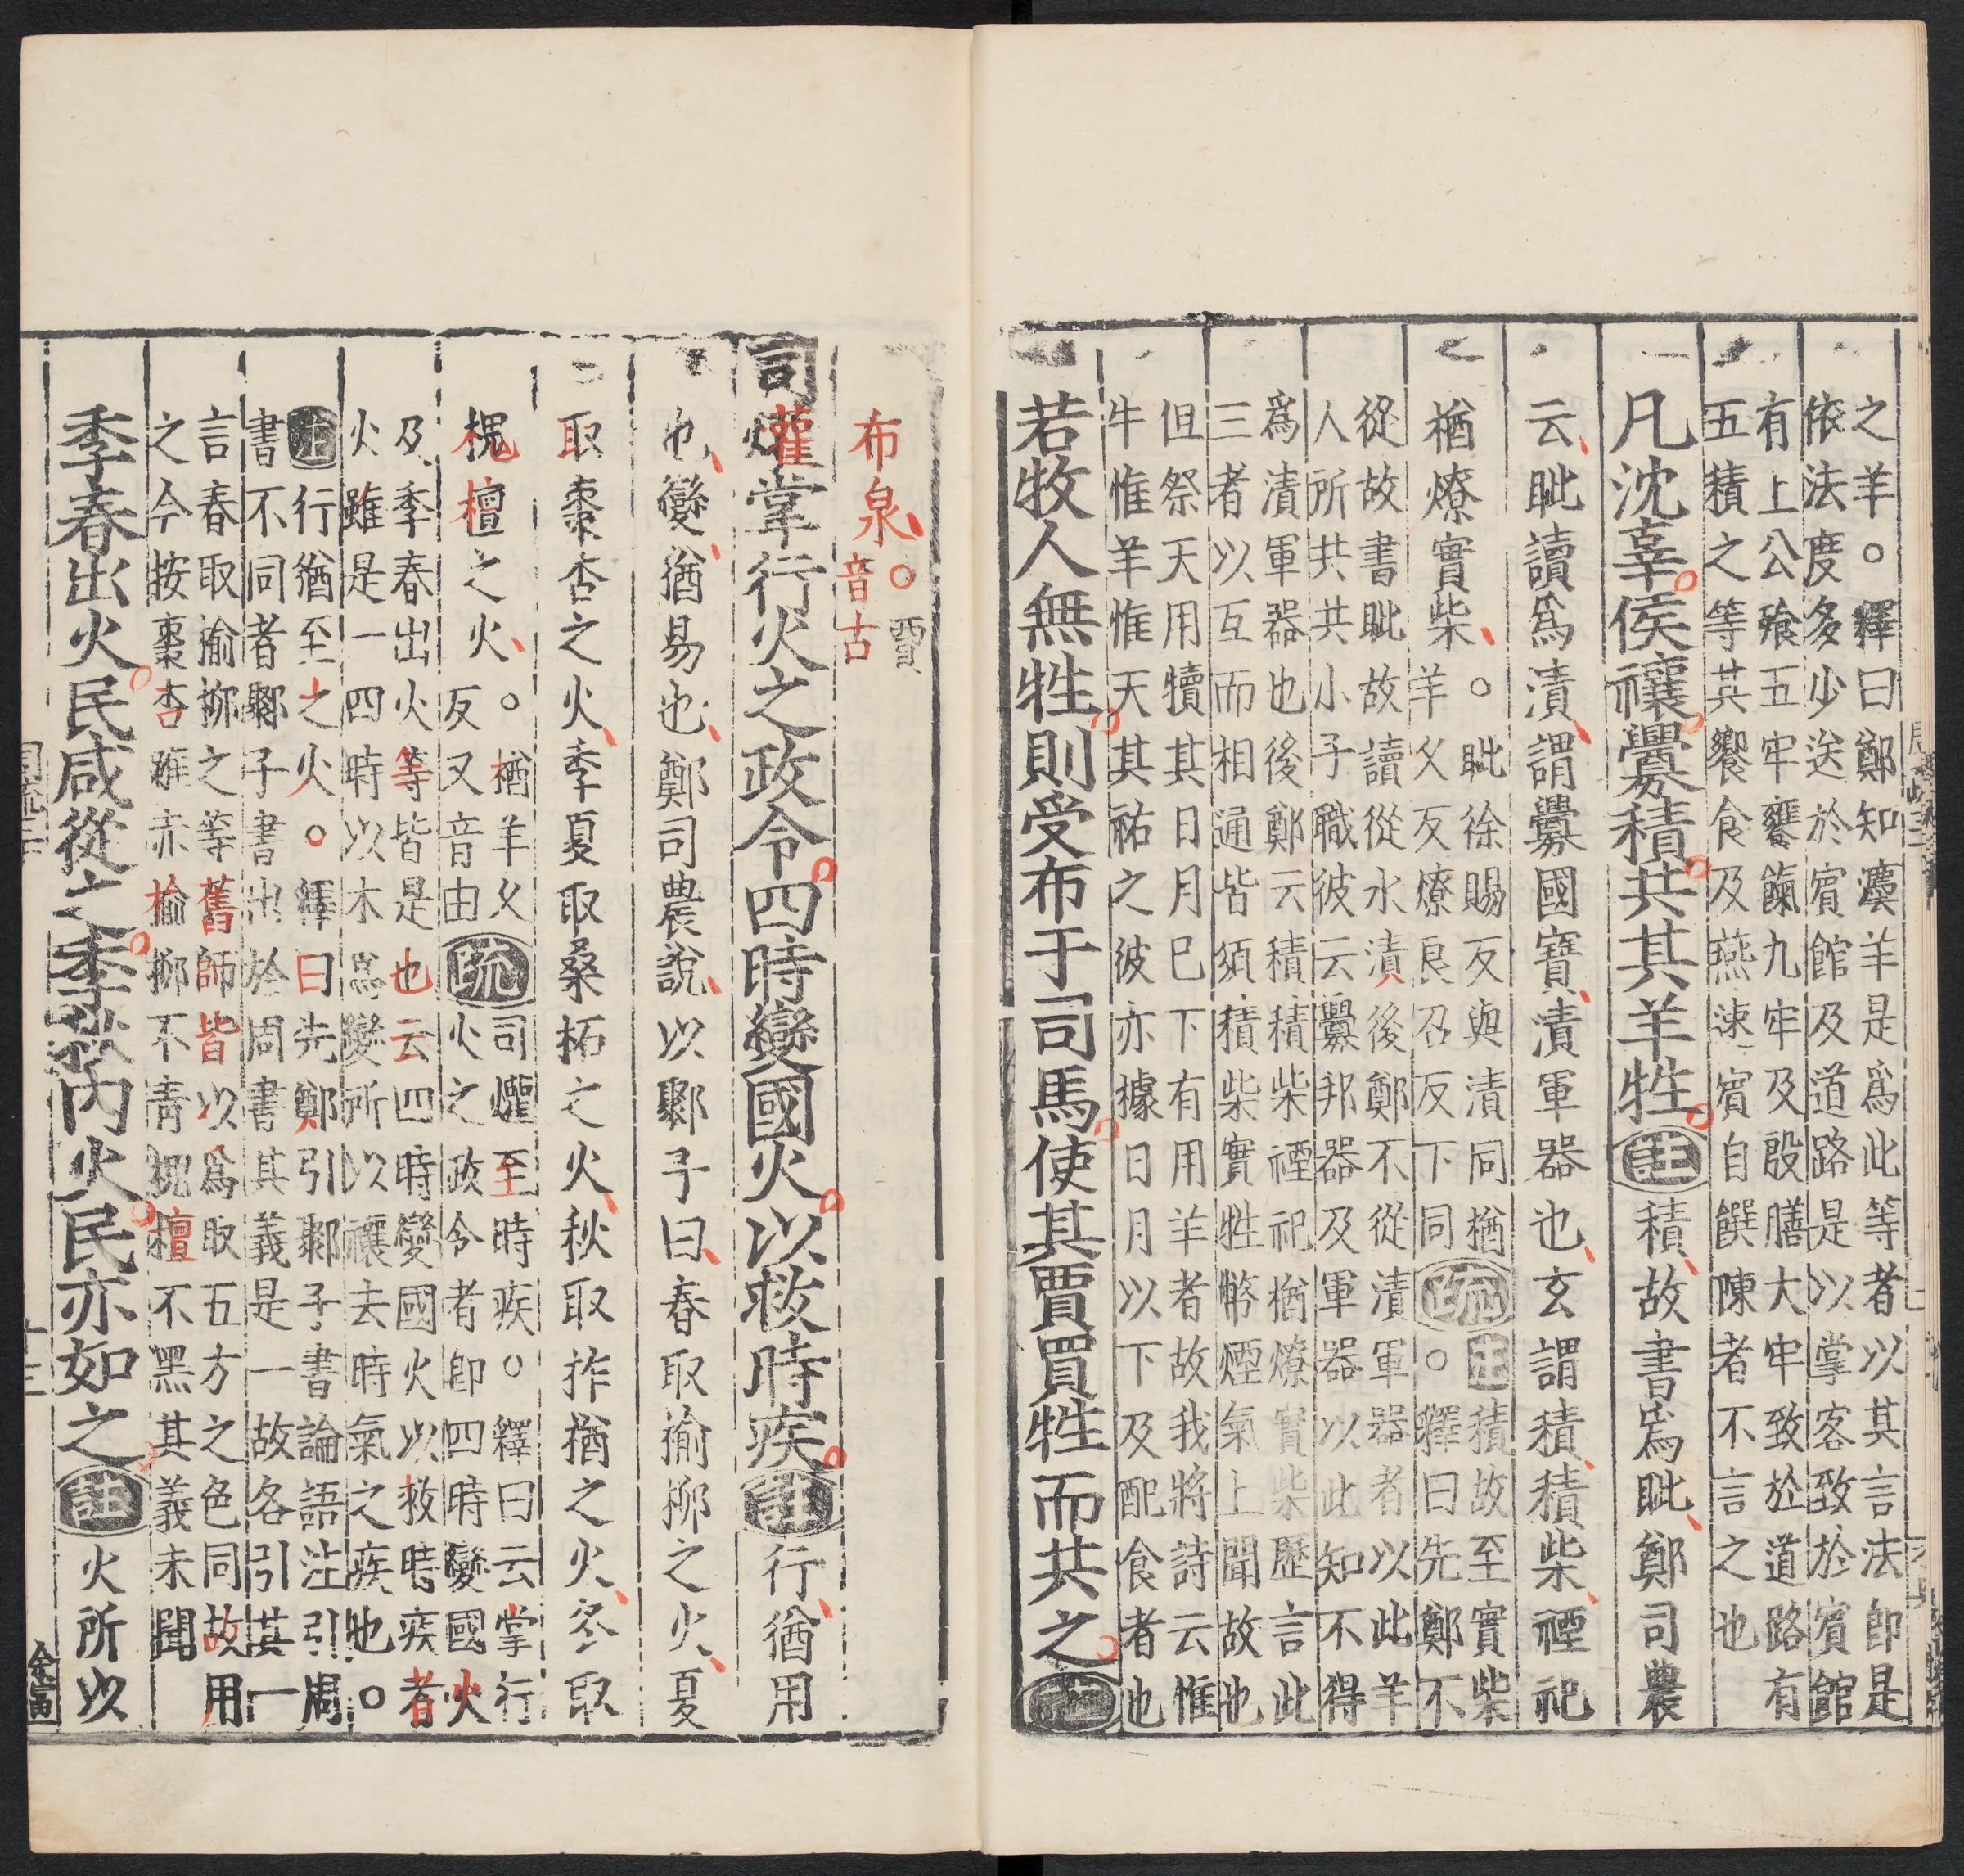 之羊○釋曰鄭知灋羊是爲此等者以其言法即是
依法度多少送於賓館及道路是以掌客致於賓館
有上公飱五牢饔餼九牢及殷膳大牢致於道路有
五積之等其饗食及燕速賓自饌陳者不言之也
凡沈辜侯禳釁積共其羊牲註積故書爲眦鄭司農
云眦讀爲漬謂釁國寶漬軍器也玄謂積積柴禋祀
楢燎實柴○眦徐賜反與漬同楢
羊久反燎良召反下同疏註積故至實柴
○釋曰先鄭不
從故書眦故讀從水漬後鄭不從漬軍器者以此羊
人所共共小子職彼云釁邦器及軍器以此知不得
爲漬軍器也後鄭云積積柴禋祀楢燎實柴歷言此
三者以互而相通皆須積柴實牲幣煙氣上聞故也
但祭天用犢其日月已下有用羊者故我將詩云惟
牛惟羊惟天其祐之彼亦據日月以下及配食者也
若牧人無牲則受布于司馬使其賈買牲而共之註
布泉○賈
音古
司爟掌行火之政令四時變國火以救時疾註行猶用
也變猶易也鄭司農說以鄹子曰春取榆柳之火夏
取棗杏之火季夏取桑柘之火秋取柞楢之火冬取
槐檀之火○楢羊久
反又音由疏司爟至時疾○釋曰云掌行
火之政令者即四時變國火
及季春出火等皆是也云四時變國火以救時疾者
火雖是一四時以木爲變所以禳去時氣之疾也○
註行猶至之火○釋曰先鄭引鄹子書論語注引周
書不同者鄹子書出於周書其義是一故各引其一
言春取榆柳之等舊師皆以爲取五方之色同故用
之今按棗杏雖赤榆柳不青槐檀不黑其義未聞
季春出火民咸從之季秋內火民亦如之註火所以